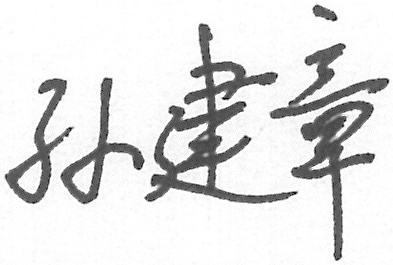 孙建章